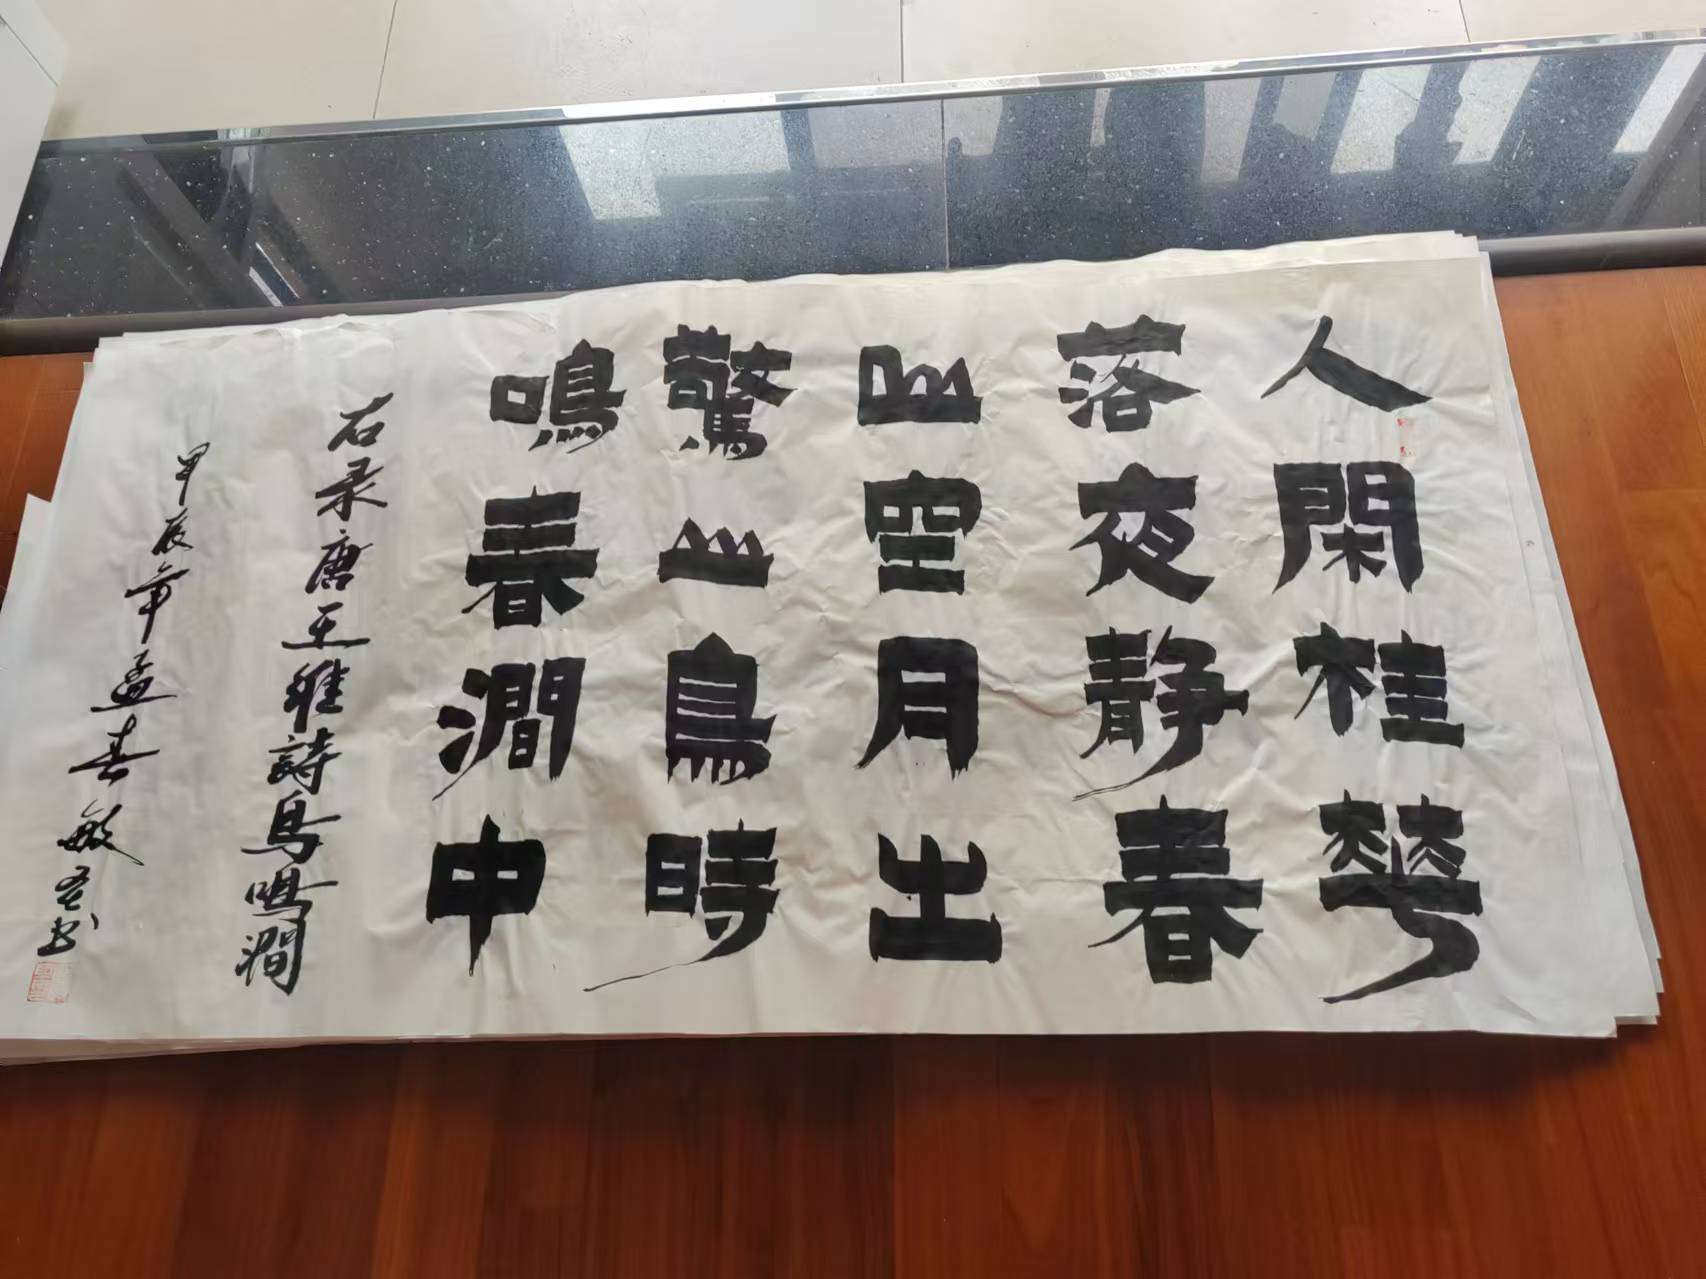 人閑桂華
落夜静春
山空月出
驚山鳥時
鳴春澗中
右录唐王維詩鳥鳴澗
甲辰年孟春敏